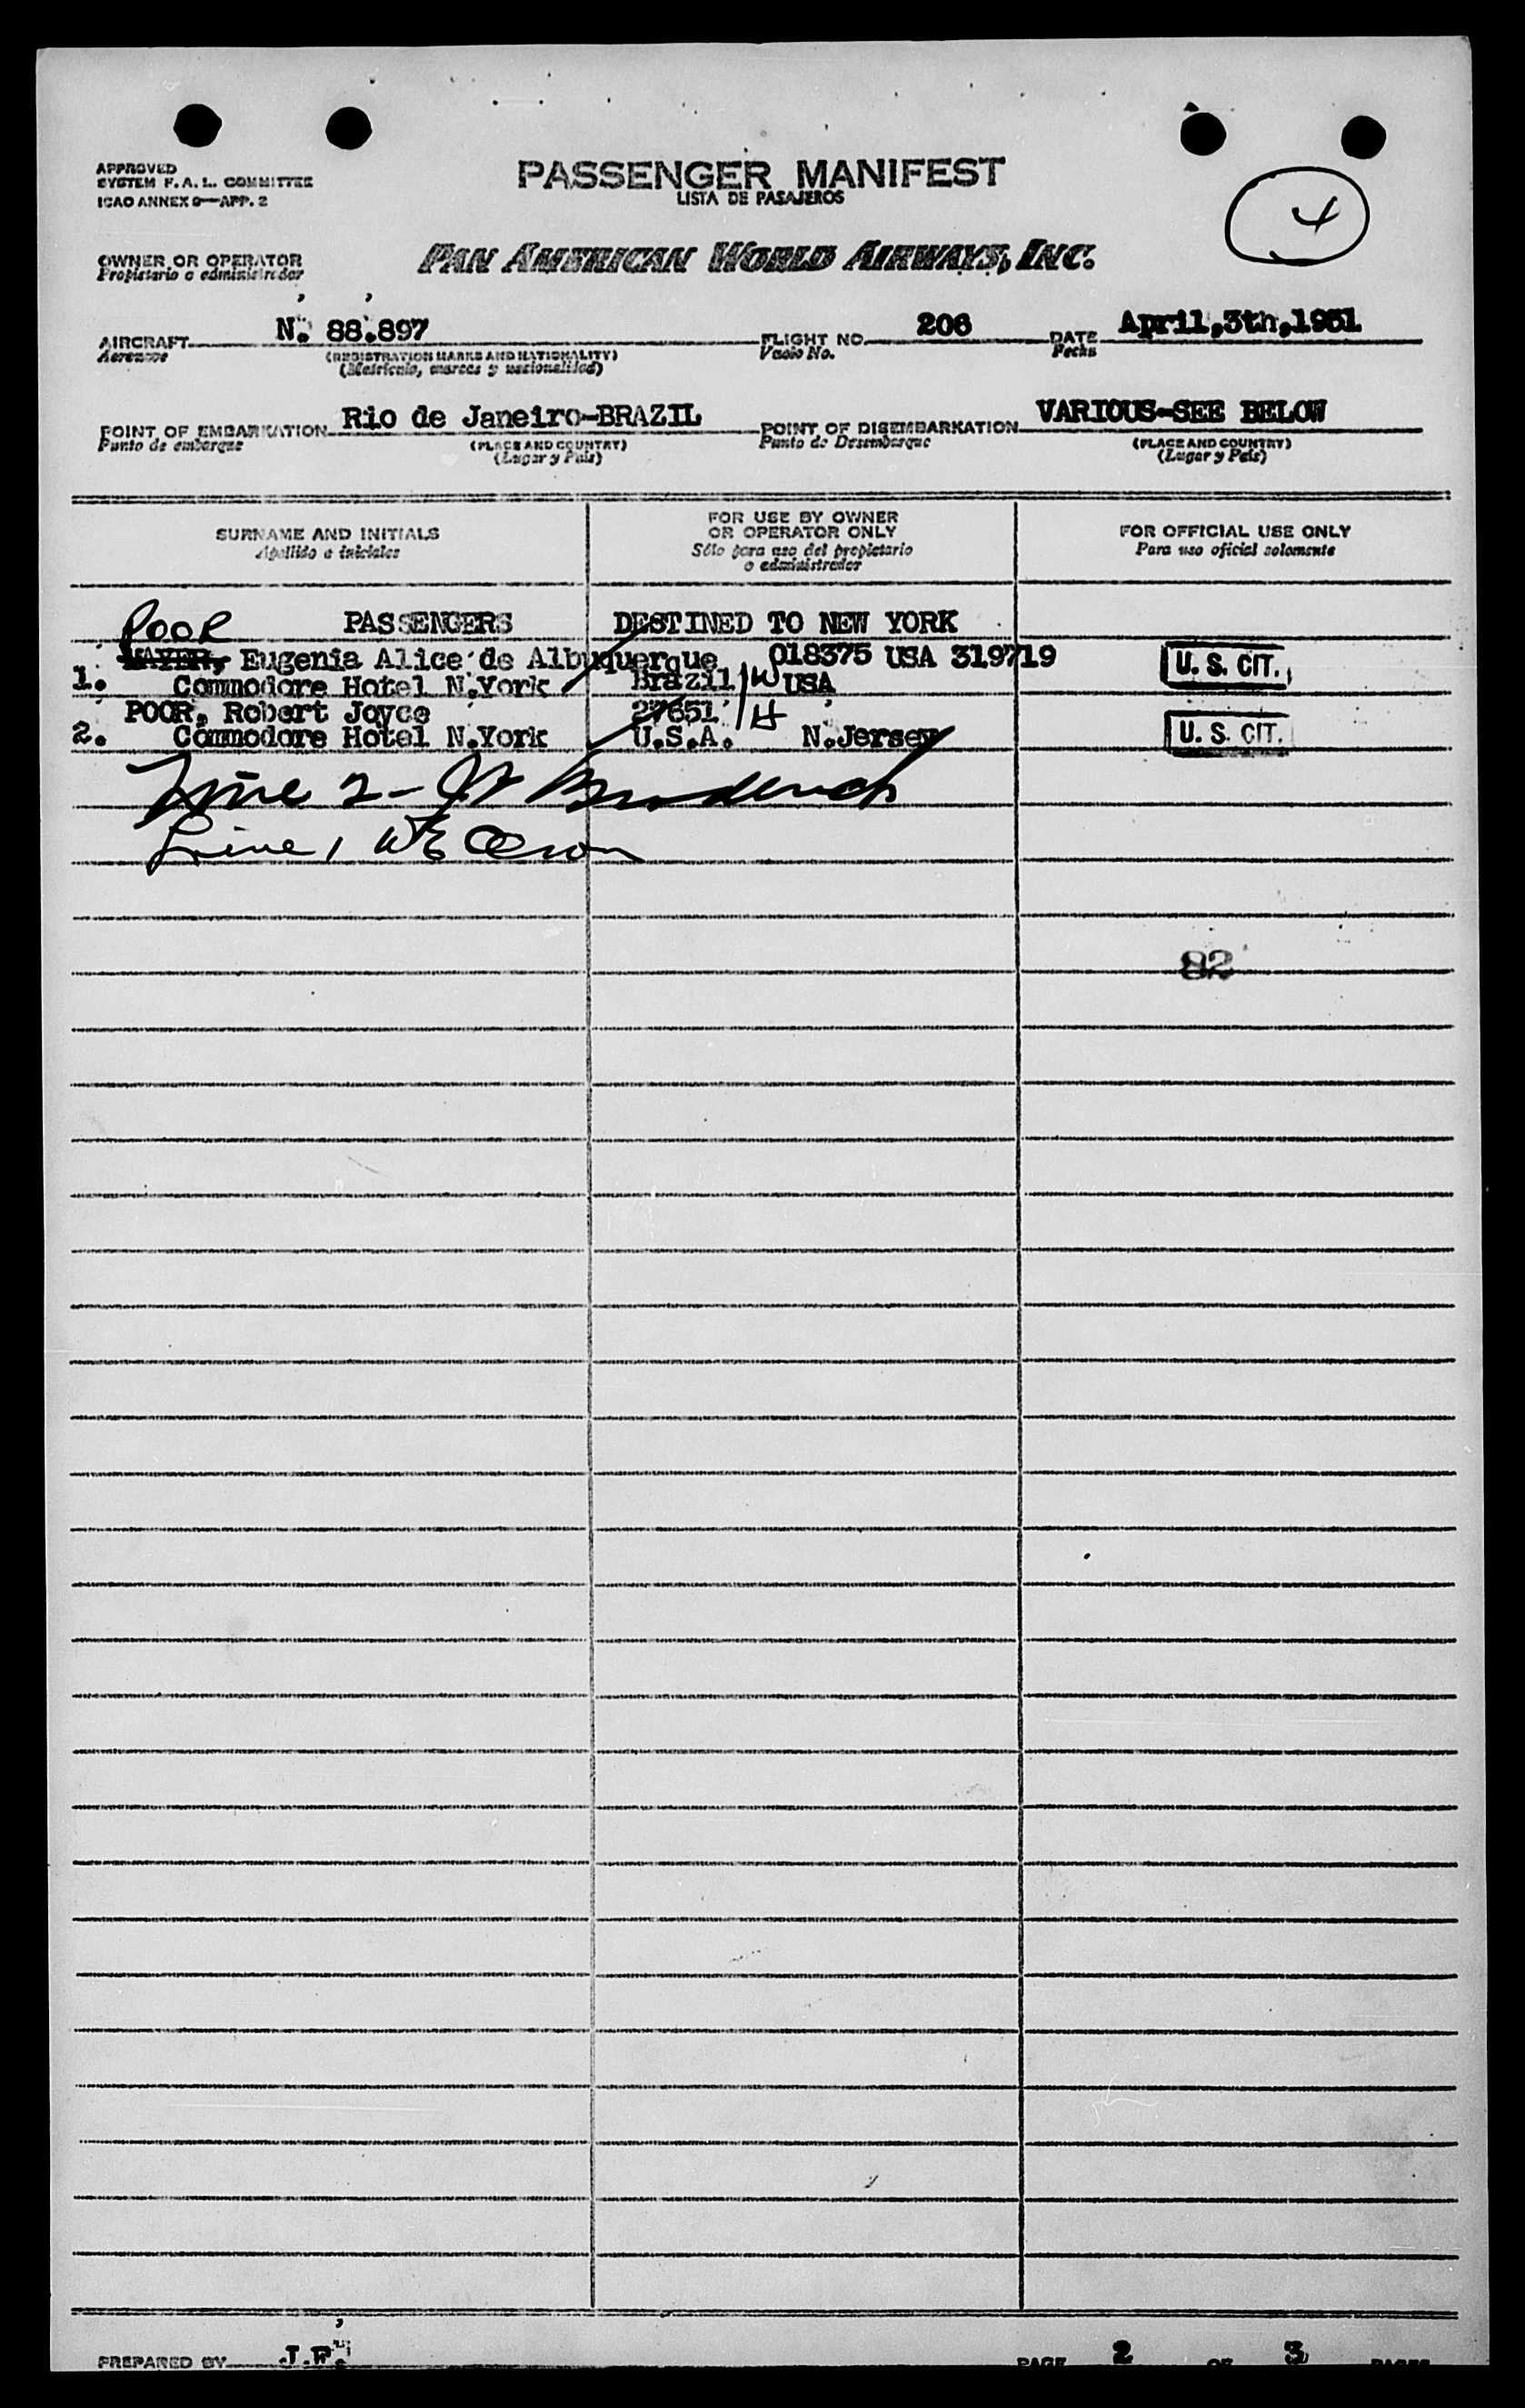 APPROVED
SYSTEM F. A. L. COMMITTEE
ICAO ANNEX 9—APP. 2
PASSENGER MANIFEST
LISTA DE PASAJEROS
4
OWNER OR OPERATOR
Propietario o administrador
PAN AMERICAN WORLD AIRWAYS, INC.
AIRCRAFT N. 88.897 FLIGHT NO. 206 DATE April,3th,1951
Aeronave (REGISTRATION MARKS AND NATIONALITY) Vuelo No. Fecha
(Matrícula, marcas y nacionalidad)
POINT OF EMBARKATION Rio de Janeiro-BRAZIL POINT OF DISEMBARKATION VARIOUS-SEE BELOW
Punto de embarque (PLACE AND COUNTRY) Punto de Desembarque (PLACE AND COUNTRY)
(Lugar y País) (Lugar y País)
SURNAME AND INITIALS
Apellido e iniciales
FOR USE BY OWNER
OR OPERATOR ONLY
Sólo para uso del propietario
o administrador
FOR OFFICIAL USE ONLY
Para uso oficial solamente
POOR PASSENGERS DESTINED TO NEW YORK
MAYER, Eugenia Alice de Albuquerque 018375 USA 319719 U. S. CIT.
1. Commodore Hotel N.York Brazil W USA
POOR, Robert Joyce 27651 H
2. Commodore Hotel N.York U.S.A. N.Jersey U. S. CIT.
Line 2-
Line 1
82
PREPARED BY J.F. PAGE 2 OF 3 PAGES